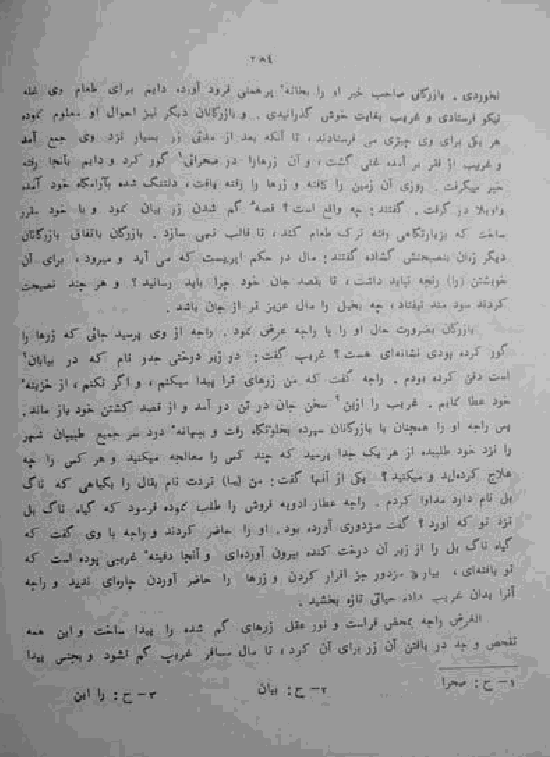 ۲۸۴
بخوردی . بازرگانی صاحب خبر او را بخانهٔ برهمنی فرود آورده دایم برای طعام وی غله
نیکو فرستادی و غریب بغایت خوش گذرانیدی . و بازرگانان دیگر نیز احوال او معلوم نموده
هر یکی برای وی چیزی می فرستادند ، تا آنکه بعد از مدتی زر بسیار نزد وی جمع آمد
و غریب از فقر بر آمده غنی گشت ، و آن زرهارا در صحرائی۱ گور کرد و دایم بآنجا رفته
خبر میگرفت . روزی آن زمین را کافته و زرها را رفته یافت ، دلتنگ شده بآرامگاه خود آمده
واویلا در گرفت . گفتند : چه واقع است ؟ قصهٔ گم شدن زر بیان نمود و با خود مقرر
ساخت که بزیارتگاهی رفته ترک طعام کند ، تا قالب تهی سازد . بازرگان باتفاق بازرگانان
دیگر زبان بنصیحتش گشاده گفتند : مال در حکم ابریست که می آید و میرود ، برای آن
خویشتن (را) رنجه نباید داشت ، تا بقصد جان خود چرا باید رسانید ؟ و هر چند نصیحت
کردند سود مند نیفتاد ، چه بخیل را مال عزیز تر از جان باشد .
بازرگان بضرورت حال او را با راجه عرض نمود . راجه از وی پرسید جائی که زرها را
گور کرده بودی نشانه‌ای هست ؟ غریب گفت : در زیر درختی جدو نام که در بیابان۲
است دفن کرده بودم . راجه گفت که من زرهای ترا پیدا میکنم ، و اگر نکنم ، از خزینهٔ
خود عطا نمایم . غریب را ازین۳ سخن جان در تن در آمد و از قصد کشتن خود باز ماند .
پس راجه او را همچنان با بازرگانان سپرده بخلوتگاه رفت و ببهانهٔ درد سر جمیع طبیبان شهر
را نزد خود طلبیده از هر یک جدا پرسید که چند کس را معالجه میکنید و هر کس را چه
علاج کرده‌اید و میکنید ؟ یکی از آنها گفت : من (ما) تردت نام بقال را بگیاهی که ناگ
بل نام دارد مداوا کردم . راجه عطار ادویه فروش را طلب نموده فرمود که گیاه ناگ بل
نزد تو که آورد ؟ گفت مزدوری آورده بود . او را حاضر کردند و راجه با وی گفت که
گیاه ناگ بل را از زیر آن درخت کنده بیرون آورده‌ای و آنجا دفینهٔ غریبی بوده است که
تو یافته‌ای ، بیار . مزدور جز اقرار کردن و زرها را حاضر آوردن چاره‌ای ندید و راجه
آنرا بدان غریب داده حیاتی تازه بخشید .
الغرض راجه بمحض فراست و نور عقل زرهای گم شده را پیدا ساخت و این همه
تفحص و جد در یافتن آن زر برای آن کرد ، تا مال مسافر غریب گم نشود و بجنس پیدا
۱- ح : صحرا ۲- ح : بیان ۳- ح : را این